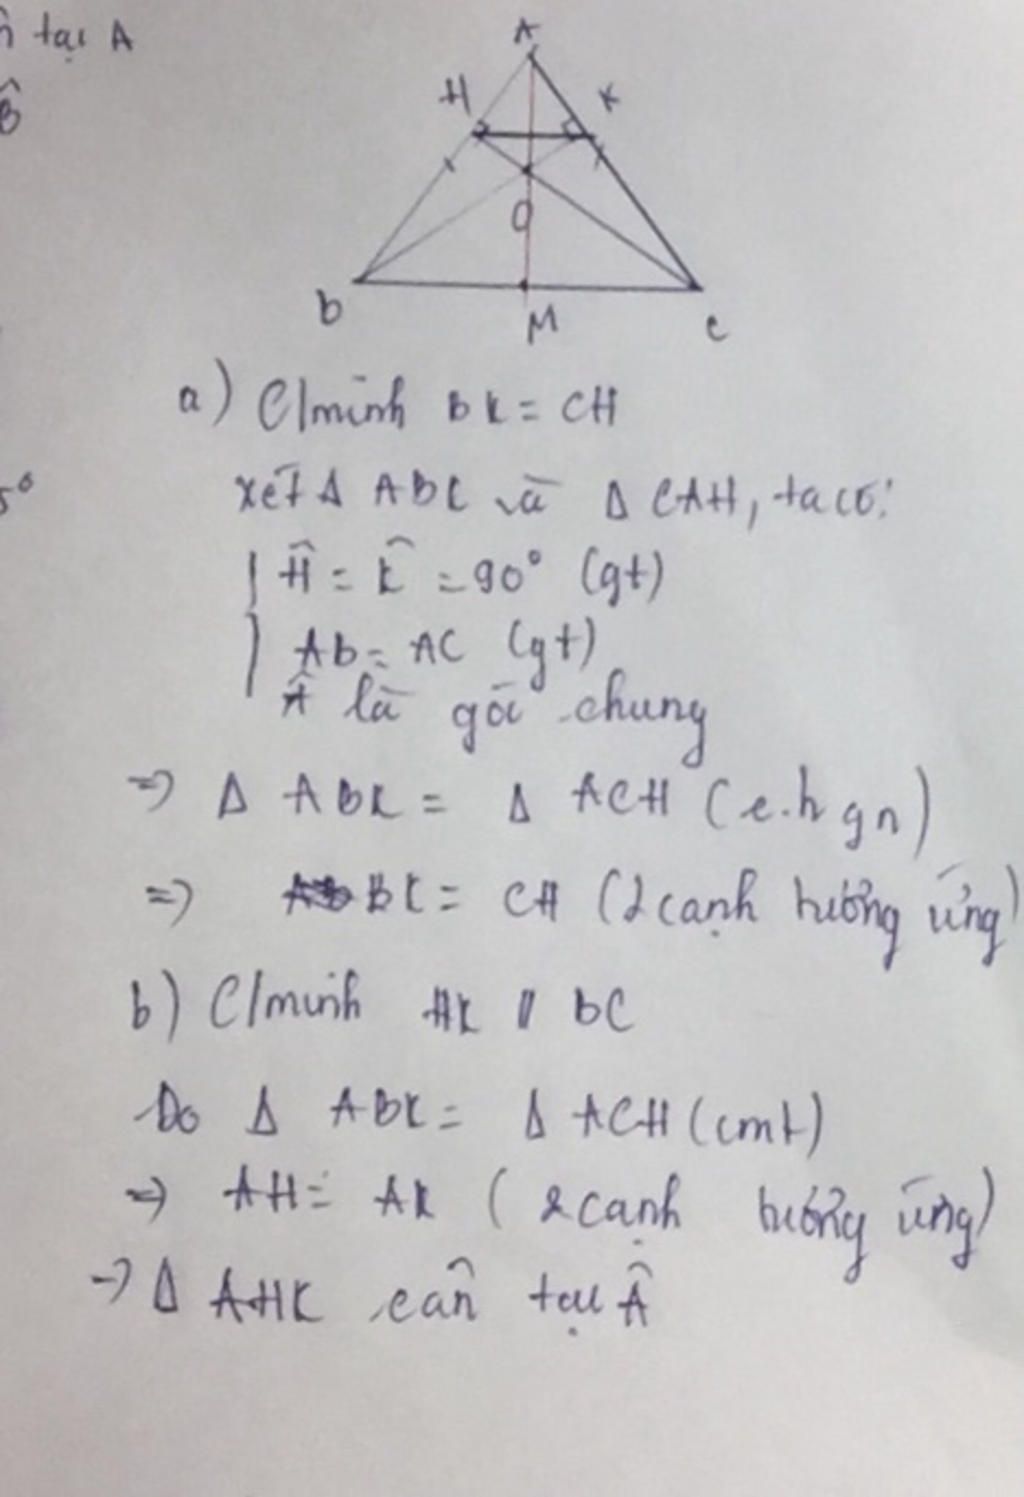 tại A
B̂
A
H K
O
b M c
5°
a) C/minh BK = CH
xét Δ ABC và Δ CAH, ta có:
Ĥ = K̂ = 90° (gt)
Ab = AC (gt)
Â là góc chung
=> Δ ABK = Δ ACH (c.h gn)
=> BK = CH (2 cạnh tương ứng)
b) C/minh HK // BC
Do Δ ABK = Δ ACH (cmt)
=> AH = AK (2 cạnh tương ứng)
-> Δ AHK cân tại Â